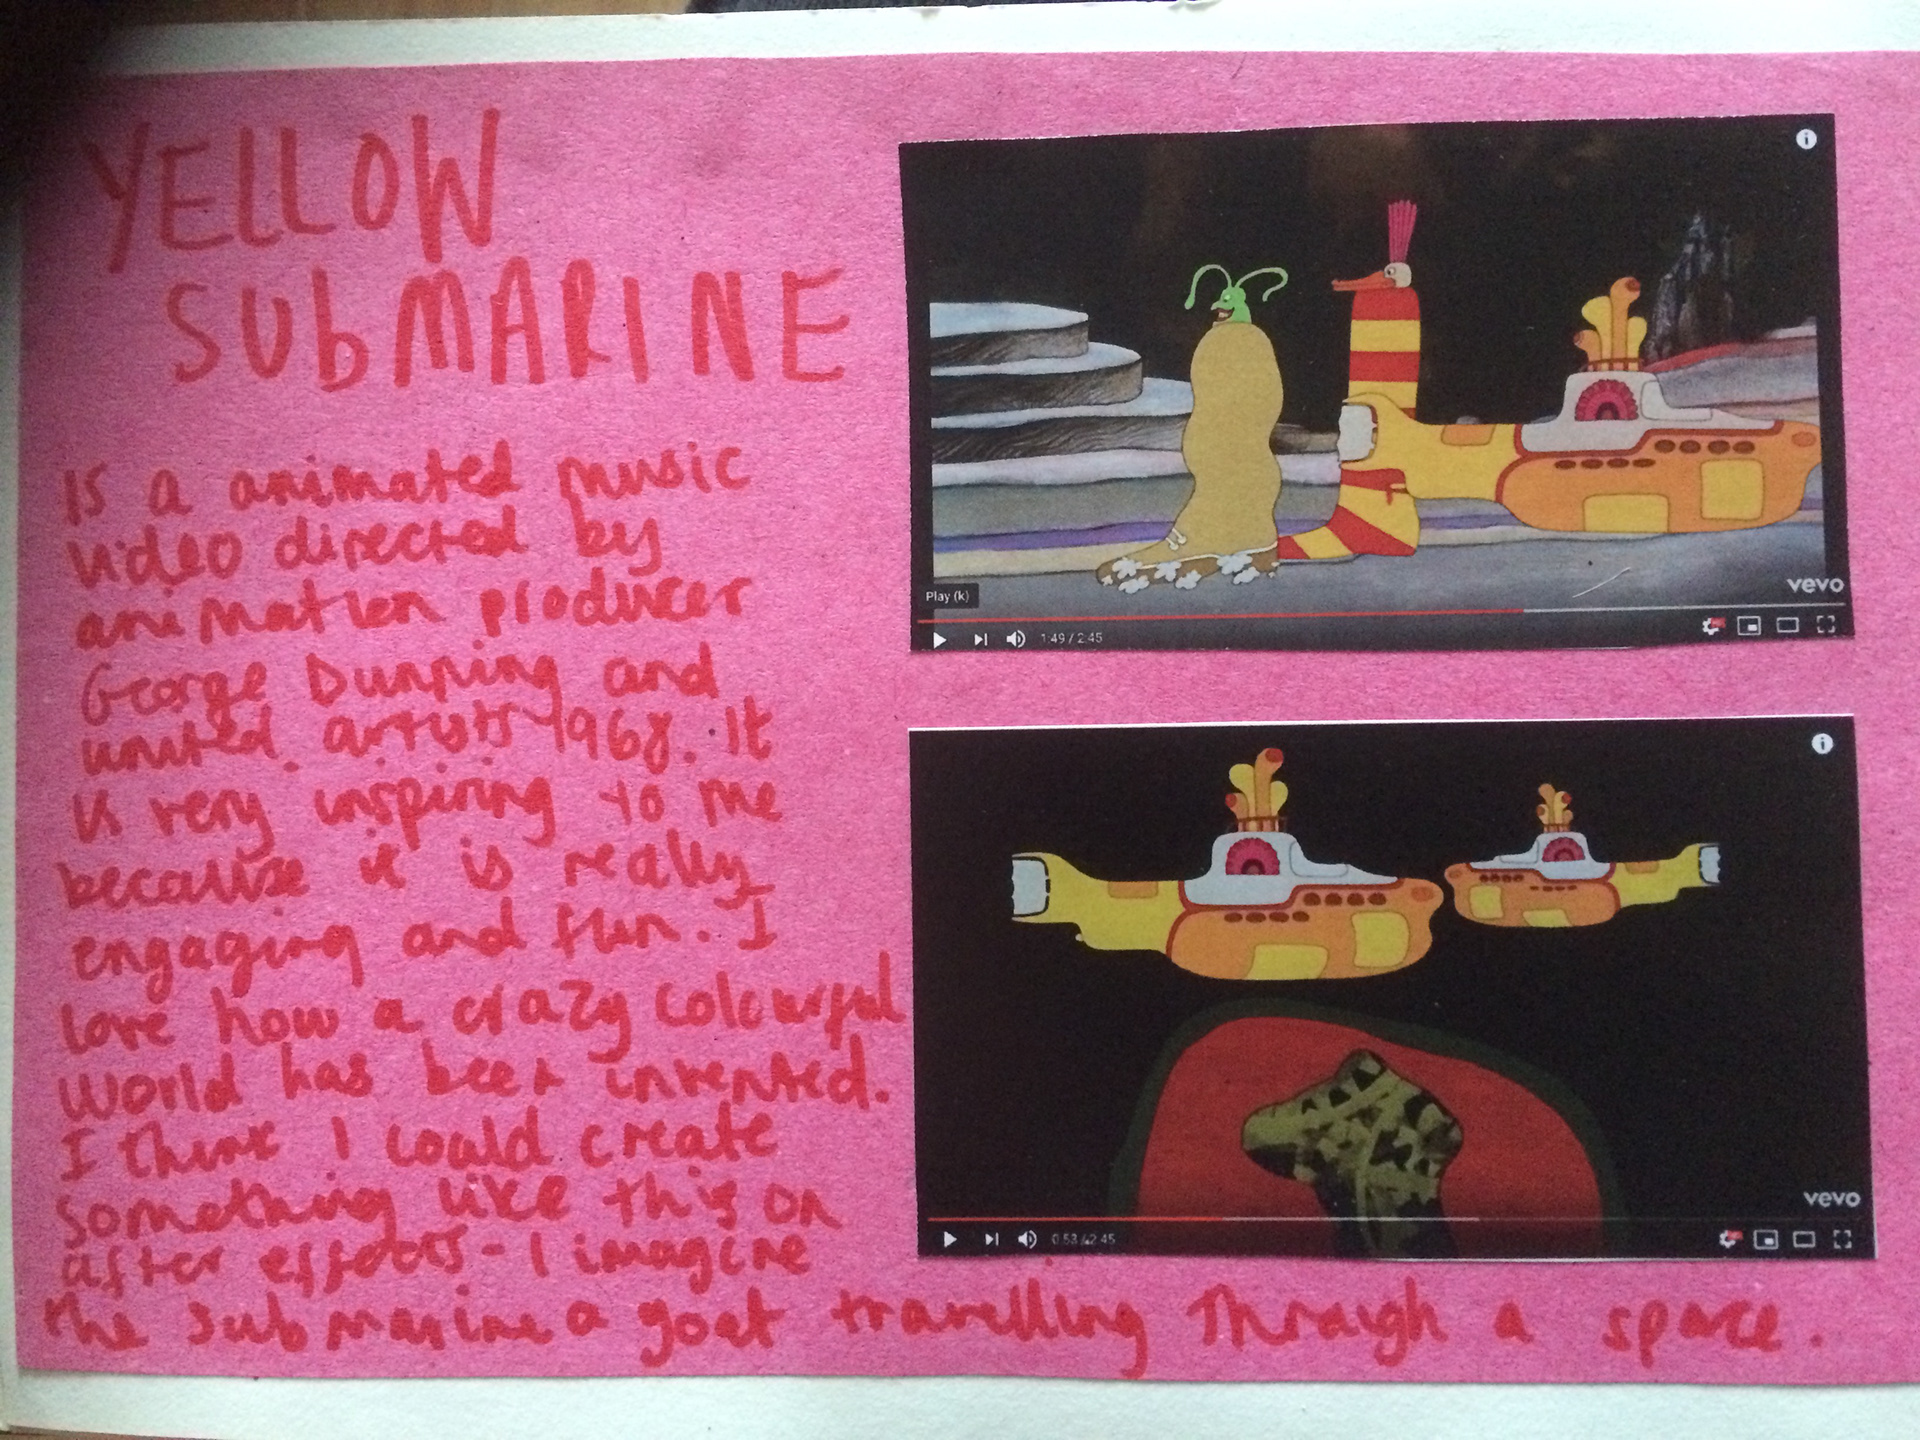 YELLOW
SUbMARINE
is a animated music
video directed by
animation producer
George Dunning and
united artists 1968. It
is very inspiring to me
because it is really
engaging and fun. I
love how a crazy colourful
world has been invented.
I think I could create
something like this on
after effects - I imagine
the submarine a goat travelling through a space.
Play (k)
vevo
1:49 / 2:45
vevo
0:53 / 2:45